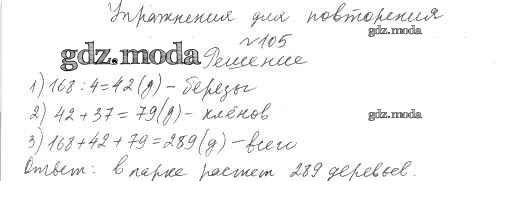 Упражнения для повторения
gdz.moda
№105
gdz.moda Решение
1) 168 : 4 = 42 (д) - берёзы
2) 42 + 37 = 79 (д) - клёнов
gdz.moda
3) 168 + 42 + 79 = 289 (д) - всего
Ответ: в парке растет 289 деревьев.